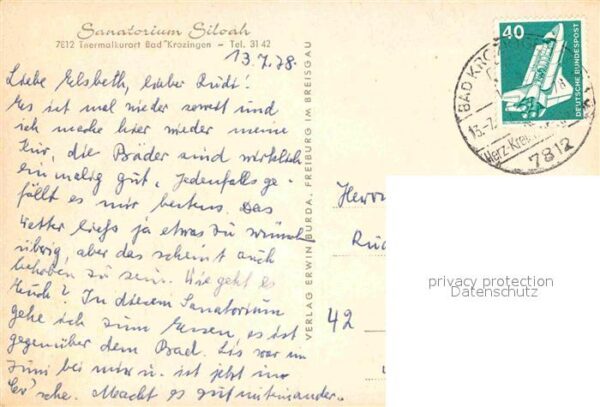 Sanatorium Siloah
7812 Thermalkurort Bad Krozingen - Tel. 31 42
13.7.78.
Liebe Elsbeth, lieber Rudi!
Es ist mal wieder soweit und
ich mache hier wieder meine
Kur, die Bäder sind wirklich
einmalig gut. Jedenfalls ge-
fällt es mir bestens. Das
Wetter ließe ja etwas zu wünsch
übrig, aber das scheint auch
zu sein. Wie geht es
Euch? In diesem Sanatorium
gehe ich zum Essen, es ist
gegenüber dem Bad. Lis war im
Juni bei mir u. ist jetzt in
Macht es gut miteinander.
VERLAG ERWIN BURDA, FREIBURG IM BREISGAU
40
DEUTSCHE BUNDESPOST
BAD KROZINGEN
13.-7.
Herz-Kreis
7812
Herrn
Rud
42
privacy protection
Datenschutz